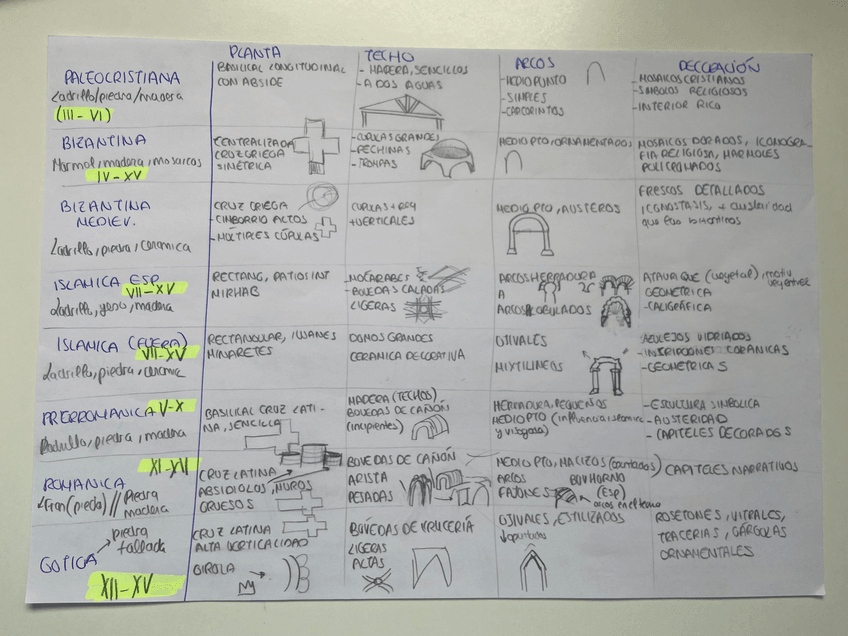 PLANTA TECHO ARCOS DECORACIÓN
PALEOCRISTIANA
Ladrillo/piedra/madera
(III - VI)
BASILICAL LONGITUDINAL
CON ABSIDE
- MADERA, SENCILLOS
- A DOS AGUAS
- MEDIO PUNTO
- SIMPLES
- MOSAICOS CRISTIANOS
- SIMBOLOS RELIGIOSOS
- INTERIOR RICO
BIZANTINA
Marmol, madera, mosaicos
IV-XV
CENTRALIZADA
CRUZ GRIEGA
SIMÉTRICA
- CUPULAS GRANDES
- PECHINAS
- TROMPAS
MEDIO PTO, ORNAMENTADOS
MOSAICOS DORADOS, ICONOGRA-
FIA RELIGIOSA, MARMOLES
POLICROMADOS
BIZANTINA
MEDIEV.
Ladrillo, piedra, ceramica
CRUZ GRIEGA
- CIMBORRIO ALTOS
- MÚLTIPLES CÚPULAS
CUPULAS + PEQ
+ VERTICALES
MEDIO PTO, AUSTEROS
FRESCOS DETALLADOS
ICONOSTASIS, + austeridad
que los bizantinos
ISLAMICA ESP
VII-XV
Ladrillo, yeso, madera
RECTANG, PATIOS INT
MIRHAB
- MOCARABES
- BOVEDAS CALADAS
LIGERAS
ARCOS HERRADURA
A
ARCOS LOBULADOS
ATAURIQUE (vegetal), motiv
vegetales
GEOMETRICA
- CALIGRÁFICA
ISLAMICA (FUERA)
VII-XV
Ladrillo, piedra, ceramic
RECTANGULAR, IWANES
MINARETES
DOMOS GRANDES
CERAMICA DECORATIVA
OJIVALES
MIXTILINEOS
AZULEJOS VIDRIADOS
- INSCRIPCIONES CORANICAS
- GEOMETRICAS
PRERROMANICA V-X
Ladrillo, piedra, madera
BASILICAL CRUZ LATI-
NA, SENCILLA
MADERA (TECHOS)
BOVEDAS DE CAÑÓN
(incipientes)
HERRADURA, PEQUEÑOS
MEDIO PTO (influencia islamica
y visigoda)
- ESCULTURA SIMBOLICA
- AUSTERIDAD
- CAPITELES DECORADOS
ROMANICA
XI-XII
Piedra
madera
CRUZ LATINA
ABSIDIOLOS, MUROS
GRUESOS
BOVEDAS DE CAÑON
ARISTA
PESADAS
MEDIO PTO, MACIZOS
ARCOS
FAJONES
(ESP)
CAPITELES NARRATIVOS
GOTICA
piedra
tallada
XII-XV
CRUZ LATINA
ALTA VERTICALIDAD
GIROLA
BÓVEDAS DE CRUCERÍA
LIGERAS
ALTAS
OJIVALES, ESTILIZADOS
ROSETONES, VITRALES,
TRACERIAS, GÁRGOLAS
ORNAMENTALES